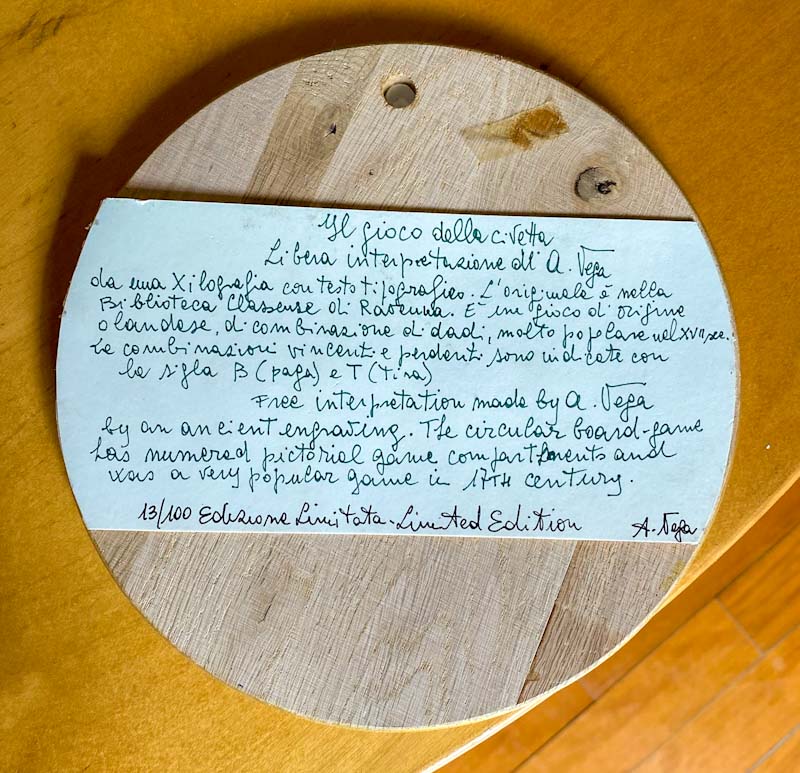 Il gioco della civetta
Libera interpretazione di A. Vega
da una Xilografia con testo tipografico. L'originale è nella
Biblioteca Classense di Ravenna. È un gioco di origine
olandese, di combinazione di dadi, molto popolare nel XVII sec.
Le combinazioni vincenti e perdenti sono indicate con
la sigla B (paga) e T (tira)
Free interpretation made by A. Vega
by an ancient engraving. The circular board-game
has numered pictorial game compartments and
was a very popular game in 17TH century.
13/100 Edizione Limitata - Limited Edition A. Vega